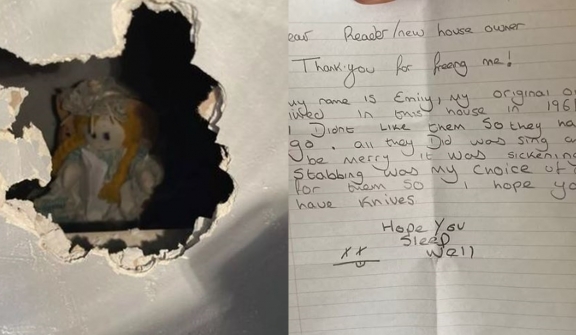 ear Reader/new house owner
Thankyou for freeing me!
my name is Emily, my original o
lived in this house in 1961
I Didnt Like them So they ha
go. all they Did was sing a
be merry it was sickening
Stabbing was my choice of
for them So I hope yo
have Knives
Hope You
Sleep
Well
xx